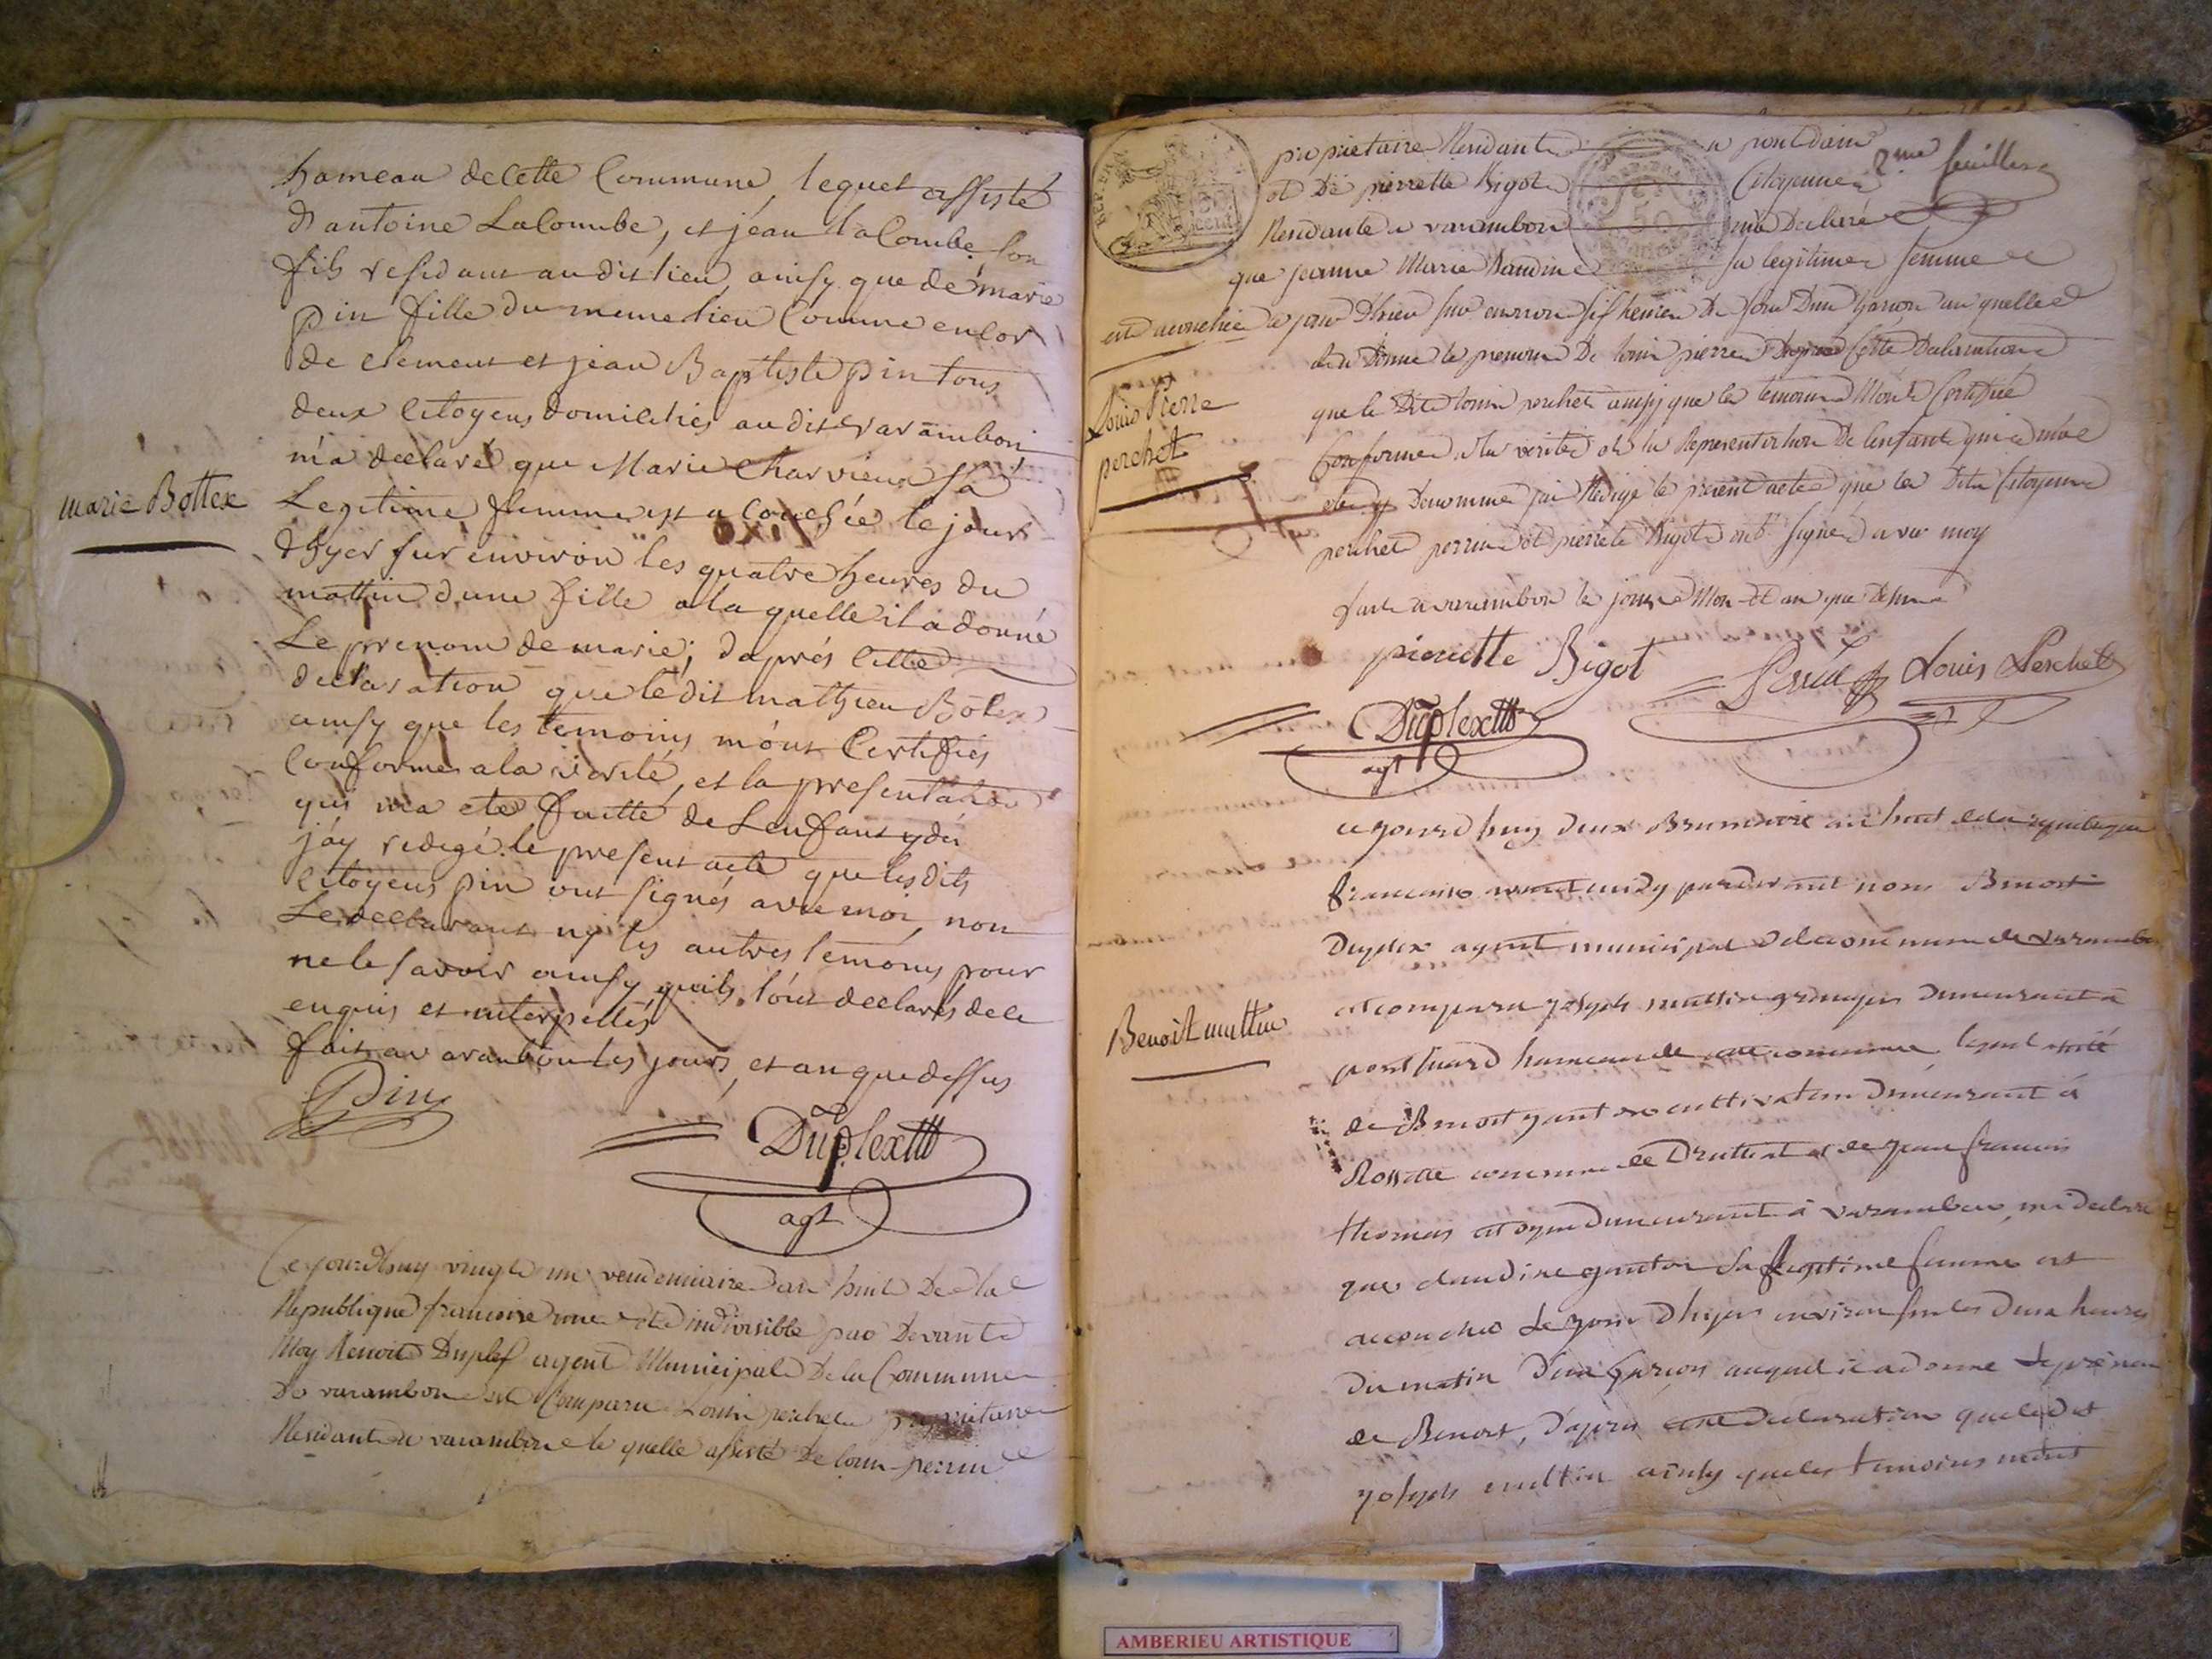 hameau decette Commune, lequel assisté
d'antoine Lacombe, et jean Lacombe son
fils residant audit lieu, ainsy que de marie
pin fille du meme lieu Comme encor
de clement et jean Baptiste pin tous
deux citoyens domiciliés audit varambon
m'a declaré que Marie Charvieux sa
Marie Bottex
Legitime femme est acouchée le jour
d'hyer sur environ les quatre heures du
mattin d'une fille a la quelle il a donné
Le prenom de marie; daprés cette
declaration que ledit mathieu Botex
ainsy que les temoins m'ont Certifiés
Conforme a la verité, et la presentation
qui ma eté faitte de Lenfant ydé
j'ay redegé le present acte que lesdits
Citoyens pin ont signés avec moi, non
Le declarant ny les autres temoins pour
ne le savoir ainsy quils l'ont declarés de ce
enquis et interpellés
fait a varambon les jours, et an que dessus
Pin
Duplex
agt
Ce jourdhuy vingt un vendemiaire an huit De la
Republique francoise une et indivisible par Devant
Moy Benoit Duplex agent Municipal De la Commune
De varambon est Comparu Louis perchet propriétaire
Residant a varambon le quelle assisté De louis perrin
proprietaire Residant a pont dain
2me feuillet
et De pierrette Bigot Citoyenne
Residante a varambon m'a Declaré
que jeanne Marie Baudin sa legitime femme
est acouchée le jour D'hier sur environ six heures Du soir D'un garcon au quelle
il a Donné le prenom De louis pierre Cette Declaration
Louis Pierre
perchet
que le Dit louis perchet ainsy que les temoins M'ont Certifié
Conforme a la verité et la Representation De lenfant qui a moi
Denommé j'ai Redigé le present acte que les Dits Citoyens
perchet perrin et pierrete Bigot ont signé avec moy
fait a varambon le jour Mois et an que Dessus
pierrette Bigot
Louis Perchet
Duplex
agt
ce jourd huy deux Brumaire an huit de la republique
francaise avant midy pardevant nous Benoit
Duplex agent municipal de la commune de varambon
est comparu joseph muttin granger demeurant à
Benoit muttin
pont suard hameau de cette commune lequel assisté
de Benoit cultivateur demeurant à
Rossette commune de Druillat et de jean francois
thomas citoyen demeurant à varambon, m'a declaré
que claudine sa legitime femme est
accouchée le jour d'hyer environ sur les deux heures
du matin d'un garcon auquel il a donné le prenom
de Benoit, d'apres cette declaration que ledit
joseph muttin ainsy que les temoins m'ont
AMBERIEU ARTISTIQUE